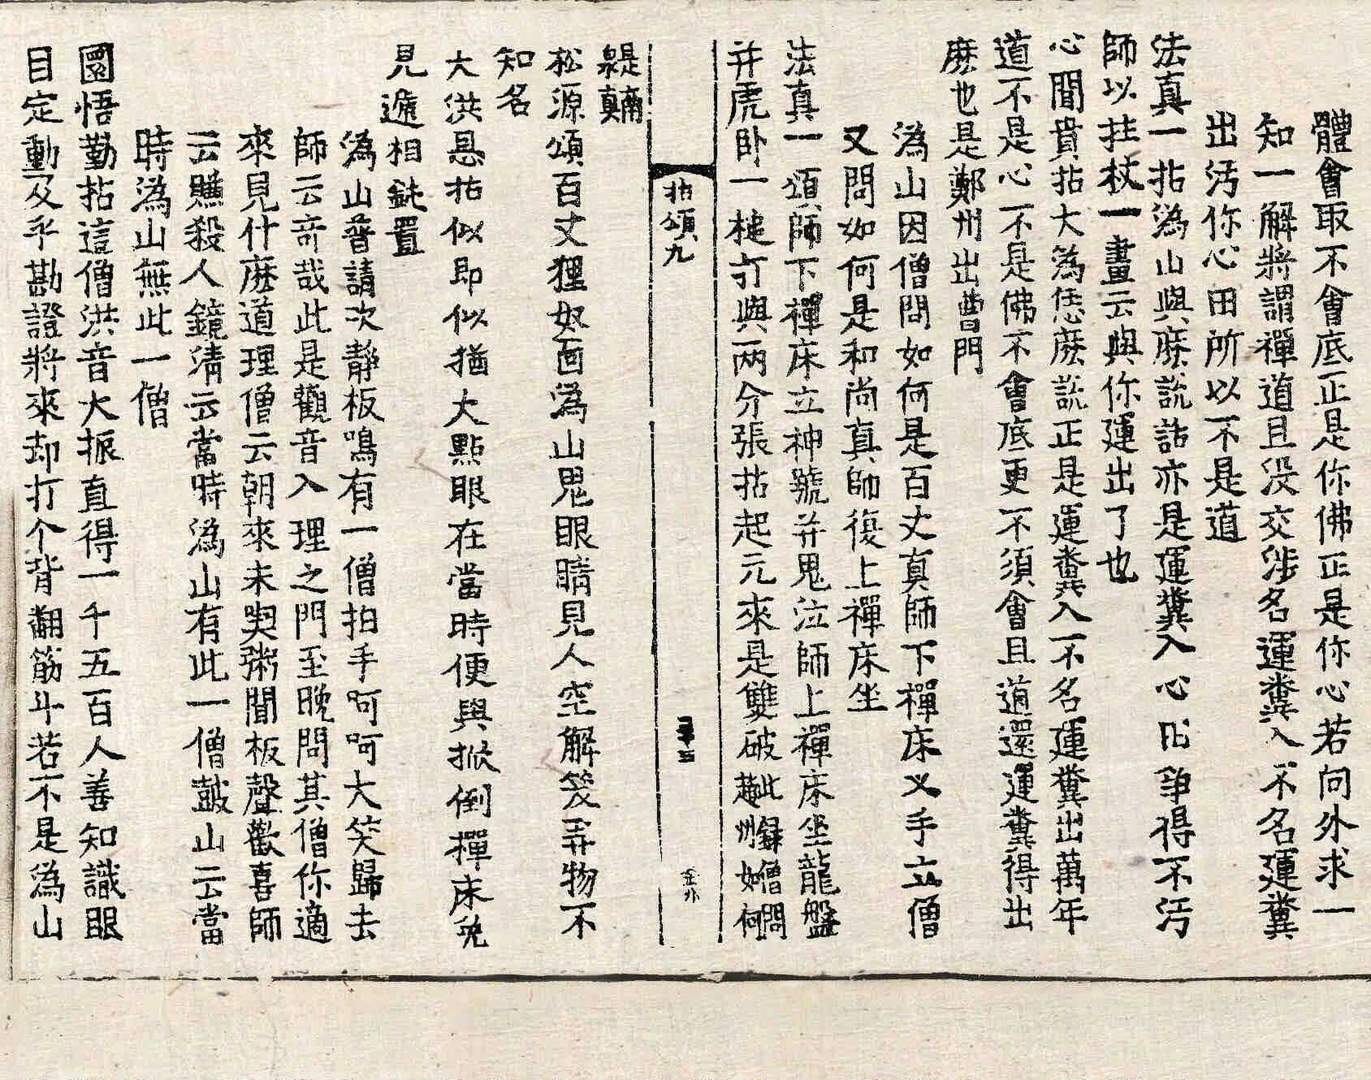 體會取不會底正是你佛正是你心若向外求一
知一解將謂禪道且没交涉名運糞入不名運糞
出汚你心田所以不是道
法真一拈溈山與麽說話亦是運糞入心比爭得不汚
師以拄杖一畫云與你運出了也
心聞賁拈大溈恁麽說正是運糞入不名運糞出萬年
道不是心不是佛不會底更不須會且道還運糞得出
麽也是鄭州出曹門
溈山因僧問如何是百丈真師下禪床叉手立僧
又問如何是和尚真師復上禪床坐
法真一頌師下禪床立神號并鬼泣師上禪床坐龍盤
并虎卧一槌打與兩分張拈起元來是雙破此録僧問趙州如何
拈頌九
是南泉真
松源頌百丈狸奴面溈山鬼眼睛見人空解笑弄物不
知名
大洪恩拈似即似猶欠點眼在當時便與掀倒禪床免
見遞相鈍置
溈山普請次靜板鳴有一僧拍手呵呵大笑歸去
師云奇哉此是觀音入理之門至晚問其僧你適
來見什麽道理僧云朝來未喫粥聞板聲歡喜師
云賺殺人鏡淸云當時溈山有此一僧皷山云當
時溈山無此一僧
圜悟勤拈這僧洪音大振直得一千五百人善知識眼
目定動及乎勘證將來却打个背翻筋斗若不是溈山